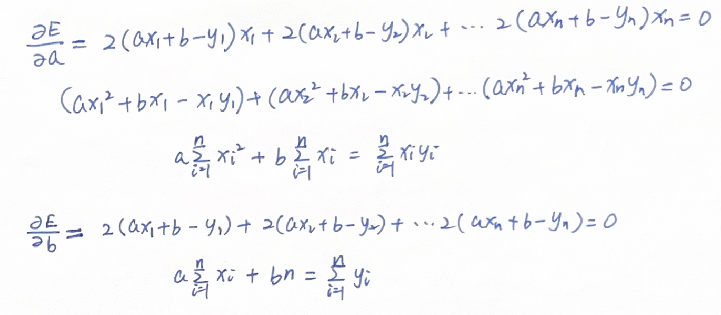 ∂E/∂a = 2(ax₁+b-y₁)x₁ + 2(ax₂+b-y₂)x₂ + ··· 2(axₙ+b-yₙ)xₙ = 0
(ax₁²+bx₁-x₁y₁)+(ax₂²+bx₂-x₂y₂)+...(axₙ²+bxₙ-xₙyₙ)=0
a∑ᵢ₌₁ⁿ xᵢ² + b∑ᵢ₌₁ⁿ xᵢ = ∑ᵢ₌₁ⁿ xᵢyᵢ
∂E/∂b = 2(ax₁+b-y₁) + 2(ax₂+b-y₂) + ···2(axₙ+b-yₙ)=0
a∑ᵢ₌₁ⁿ xᵢ + bn = ∑ᵢ₌₁ⁿ yᵢ